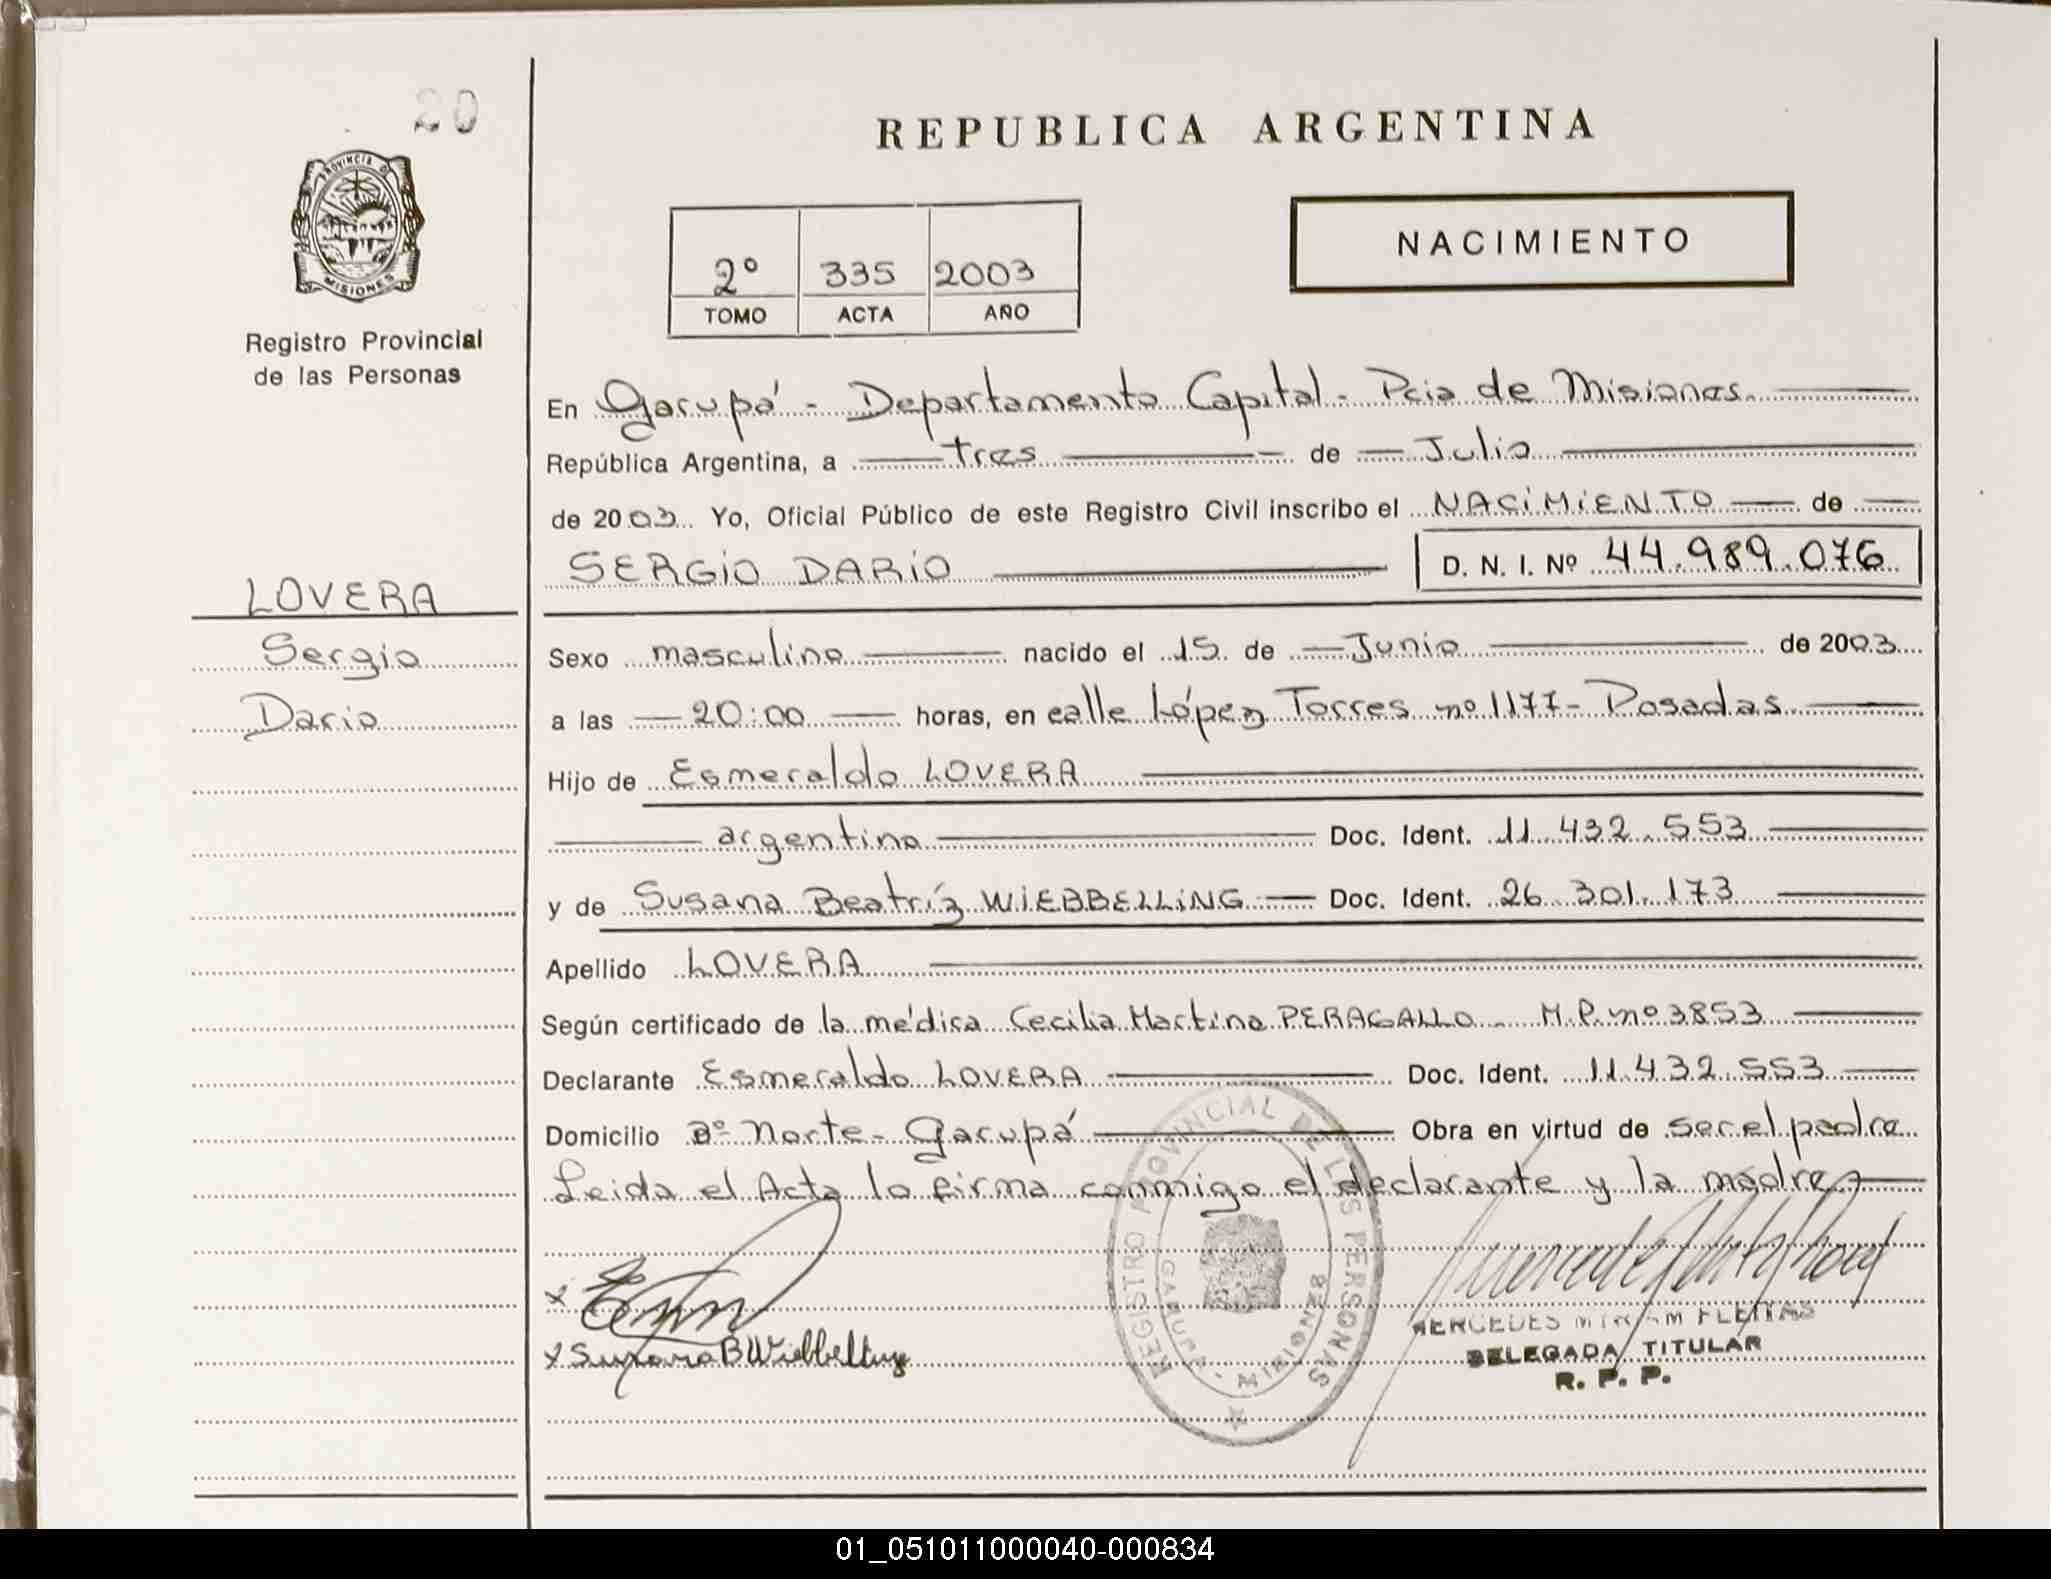 20
PROVINCIA DE
MISIONES
Registro Provincial
de las Personas
LOVERA
Sergio
Dario
REPUBLICA ARGENTINA
2º 335 2003
TOMO ACTA AÑO
NACIMIENTO
En Garupá - Departamento Capital - Pcia de Misiones
República Argentina, a tres de Julio
de 2003 Yo, Oficial Público de este Registro Civil inscribo el NACIMIENTO de
SERGIO DARIO D. N. I. Nº 44.989.076
Sexo masculino nacido el 15 de Junio de 2003
a las 20:00 horas, en calle López Torres nº 1177 - Posadas
Hijo de Esmeraldo LOVERA
argentino Doc. Ident. 11.432.553
y de Susana Beatríz WIEBBELLING Doc. Ident. 26.301.173
Apellido LOVERA
Según certificado de la médica Cecilia Martina PERAGALLO M.P. nº 3853
Declarante Esmeraldo LOVERA Doc. Ident. 11.432.553
Domicilio Bº Norte - Garupá Obra en virtud de ser el padre
Leida el Acta la firma conmigo el declarante y la madre
REGISTRO PROVINCIAL DE LAS PERSONAS
MISIONES
x
x Susana B Wiebbelling
MERCEDES MIRIAM FLEITAS
DELEGADA TITULAR
R. P. P.
01_051011000040-000834